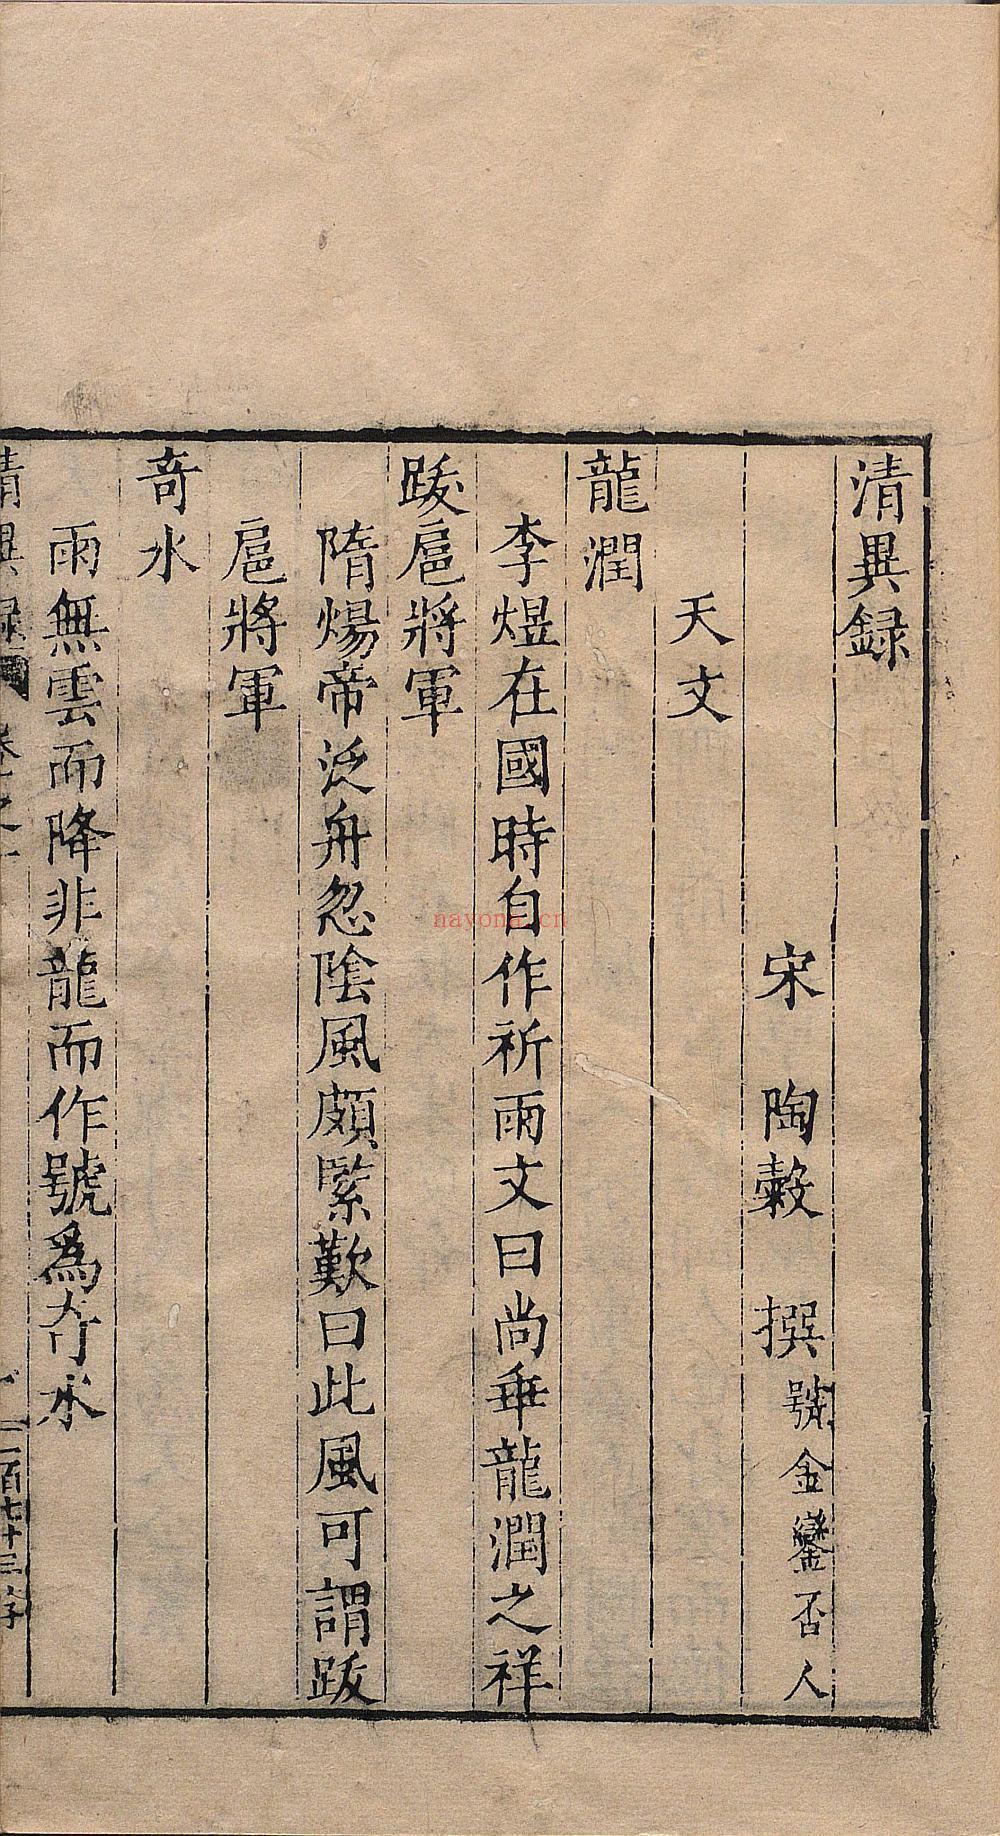 清異録
宋　陶穀　撰　號金鑾否人
天文
龍潤
李煜在國時自作祈雨文曰尚垂龍潤之祥
跋扈將軍
隋煬帝泛舟忽陰風頗緊歎曰此風可謂跋
扈將軍
奇水
雨無雲而降非龍而作號爲奇水
清異録　卷之一　二百七十三字
nayona.cn